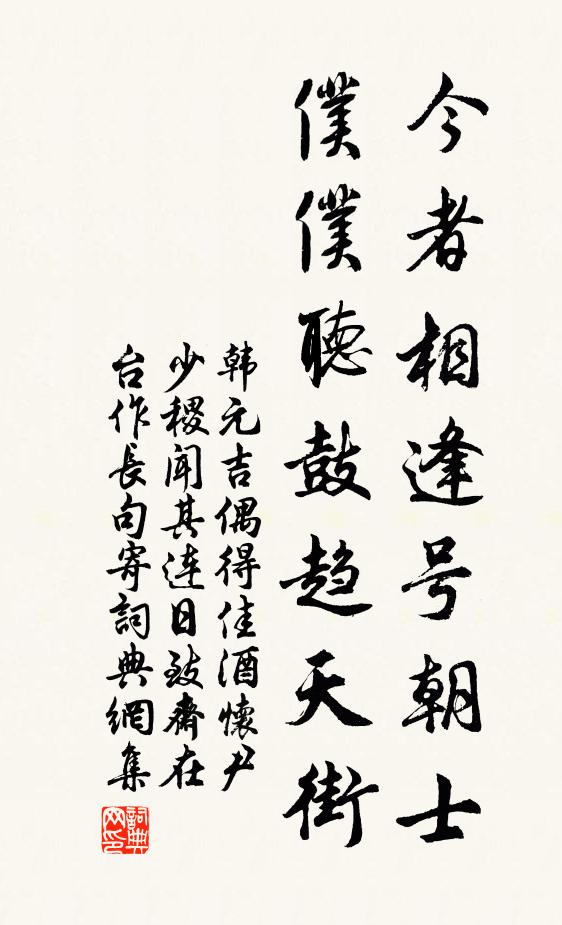 今者相逢号朝士
僕僕聴鼓趋天街
韩元吉偶得佳酒懷尹
少稷闻其连日致齋在
台作長句寄詞典網集
詞典
网印